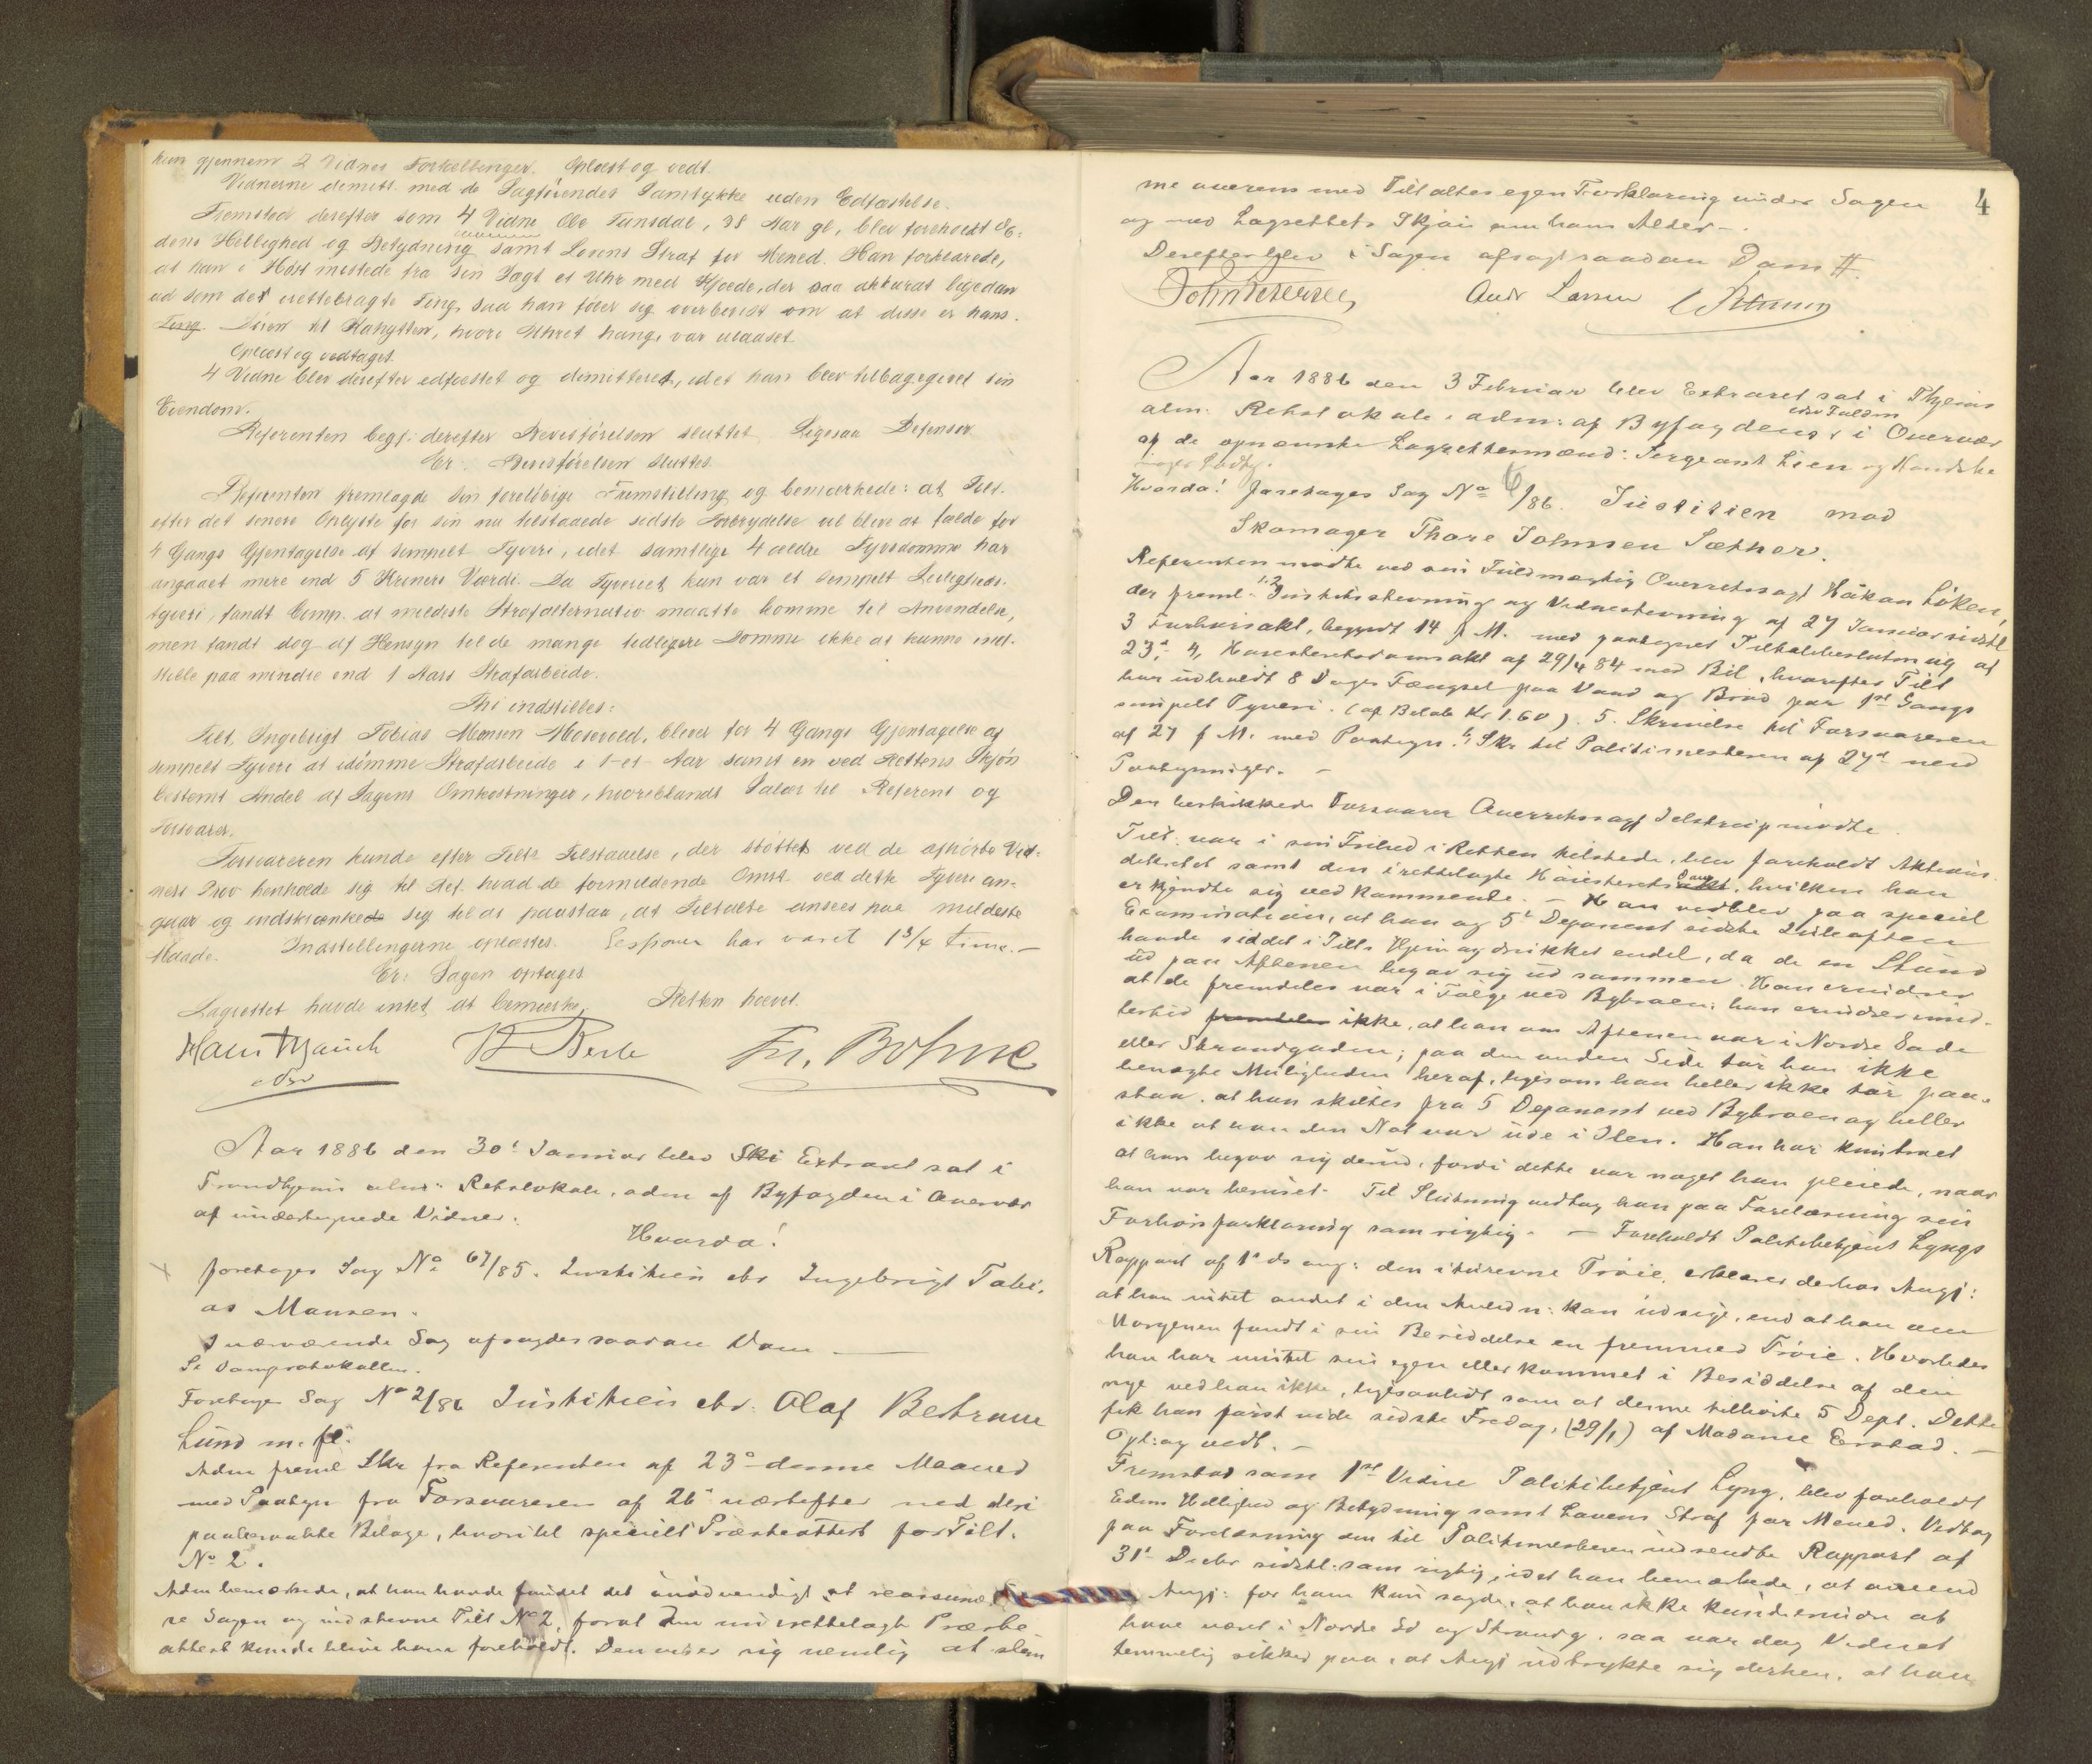 kun gjennem 2 Vidners Fortællinger. Oplæst og vedt.
Vidnerne demitt. med de Sagførendes Samtykke uden Edfæstelse.
Fremstod derefter som 4 Vidne Ole Tansdal, 38 Aar gl, blev foreholdt E-
dens Hellighed og Betydning samt Lovens Straf for Mened. Han forklarede,
at han i Høst mistede fra sin Jagt et Uhr med Kjæde, der saa akkurat ligedan
ud som det irettebragte Ting, saa han føler sig overbevist om at disse er hans.
Ting. Døren til Kahytten, hvori Uhret hang, var ulaaset.
Oplæst og vedtaget.
4 Vidne blev derefter edfæstet og demitteret, idet han blev tilbagegivet sin
Eiendom.
Referenten begj. derefter Bevisførelsen sluttet. Ligesaa Defensor
Er. Bevisførelsen sluttes.
Referenten fremlagde sin foreløbige Fremstilling og bemærkede: at Tilt.
efter det senere Oplyste for sin nu tilstaaede sidste Forbrydelse vil blive at fælde for
4 Gangs Gjentagelse af simpelt Tyveri, idet samtlige 4 ældre Tyvsdomme har
angaaet mere end 5 Kroners Værdi. Da Tyveriet kun var et simpelt Leiligheds-
tyveri, fandt Comp. at mildeste Strafalternativ maatte komme til Anvendelse,
men fandt dog af Hensyn til de mange tidligere Domme ikke at kunne ind-
stille paa mindre end 1 Aars Strafarbeide.
Thi indstilles:
Tilt. Ingebrigt Tobias Monsen Mosevold, bliver for 4 Gangs Gjentagelse af
simpelt Tyveri at idømme Strafarbeide i 1-et Aar samt en ved Rettens Skjøn
bestemt Andel af Sagens Omkostninger, hvoriblandt Salær til Referent og
Forsvarer.
Forsvareren kunde efter Tilts Tilstaaelse, der støttes ved de afhørte Vid-
ners Prov henholde sig til Ref. hvad de formildende Omst. ved dette Tyveri an-
gaar og indskrænkede sig til at paastaa, at Tiltalte ansees paa mildeste
Maade. Indstillingerne oplæstes. Sessionen har varet 1 3/4 Time. —
Er: Sagen optages
Lagrettet havde intet at bemærke, Retten hævet.
Fr. Bohme
Aar 1886 den 30' Januar blev Ski Extraret sat i
Trondhjems alm: Retslokale, adm af Byfogden i Overvær
af undertegnede Vidner.
Hvorda!
foretages Sag No 67/85. Justitien ctr Ingebrigt Tobi-
as Monsen.
I nærværende Sag afsagdes saadan Dom —
Se Domprotokollen.
Foretages Sag No 2/86 Justitien ctr. Olaf Betrane
Lund m. fl.
Adm freml Skr fra Referenten af 23de denne Maaned
med Paategn fra Forsvareren af 26' næstefter med deri
paaberaabte Bilage, hvoriblt specielt Præsteattest for Tilt.
No 2.
Adm bemærkede, at han havde fundet det unødvendigt at reassume-
re Sagen og indstevne Tilt No 2, forat den nu irettelagte Præste-
attest kunde blive ham foreholdt. Den viser sig nemlig at stem
4
me overens med Tiltaltes egen Forklaring under Sagen
og med Lagrettets Skjøn om hans Alder —.
Derefter blev i Sagen afsagt saadan Dom #.
Andr Larsen
Aar 1886 den 3 Februar blev Extraret sat i Thjems
alm. Retslokale, adm: af Byfogdens i Overvær
af de opnævnte Lagrettesmænd: Sergeant Lien og Handske
Hvorda! foretages Sag No 6/86. Justitien mod
Skomager Thore Johnsen Sæther.
Referenten mødte ved sin Fuldmægtig Overretssagf Håkan Løken,
der freml. 1,2 Justitsstevning og Vidnestevning af 27 Januar sidstl
3 Forhørsakt, begyndt 14 f M. med paategnet Tiltalebeslutning af
23de, 4, Høiesteretsdomsakt af 29/4 84 med Bil, hvorefter Tilt
har udholdt 8 Dages Fængsel paa Vand og Brød for 1ste Gangs
simpelt Tyveri. (af Beløb Kr 1.60). 5. Skrivelse til Forsvareren
af 27 f M. med Paategn. 6, Skr til Politimesteren af 27d med
Paategninger. —
Den beskikkede Forsvarer Overretssagf Jelstrup mødte.
Tilt. var i sin Frihed i Retten tilstede, blev foreholdt Aktions-
dekretet samt den irettelagte Høiesterets akt, hvilken han
erkjendte sig vedkommende. — Han vedblev paa speciel
Examination, at han og 5t Deponent sidste Juleaften
havde siddet i Tilts Hjem og drukket endel, da de en Stund
ud paa Aftenen begav sig ud sammen. Han erindrer
at de fremdeles var i Følge ved Bybroen; han erindrer imid-
lertid fremdeles ikke, at han om Aftenen var i Nordre Gade
eller Strandgaden; paa den anden Side tør han ikke
benægte Muligheden heraf, ligesom han heller ikke tør paa-
staa, at han skiltes fra 5 Deponent ved Bybroen og heller
ikke at han den Nat var ude i Ilen. Han har kun troet
at han begav sig derud, fordi dette var noget han pleiede, naar
han var beruset. Til Slutning vedtog han paa Forelæsning sin
Forhørsforklaring som rigtig. — Foreholdt Politibetjent Lyngs
Rapport af 1' ds ang: den iturevne Trøie, erklærer derhos Angj:
at han intet andet i den Anledn: kan udsige, end at han om
Morgenen fandt i sin Besiddelse en fremmed Trøie. Hvorledes
han har mistet sin egen eller kommet i Besiddelse af den
nye ved han ikke, ligesaalidt som at denne tilhørte 5 Dept. Dette
fik han først vide sidste Fredag, (29/1) af Madame Erstad. —
Opl: og vedt. —
Fremstod som 1ste Vidne Politibetjent Lyng, blev foreholdt
Edens Hellighed og Betydning samt Lovens Straf for Mened. Vedtog
paa Forelæsning sin til Politimesteren indsendte Rapport af
31' Decbr sidstl. som rigtig, idet han bemærkede, at omend
Angj: for ham kun sagde, at han ikke kunde erindre at
have været i Nordre Gd og Strandg. saa var dog Vidnet
temmelig sikker paa, at Angj udtrykte sig derhen, at han